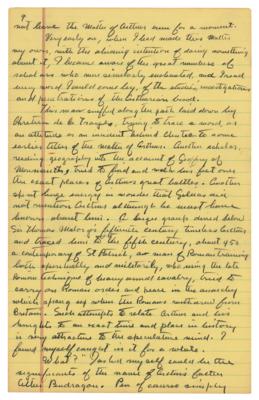 9
not leave the Matter of Arthur even for a moment.
Very early on, when I had made this matter
my own, with the abiding intention of doing something
about it, I became aware of the great numbers of
scholars who were similarly enchanted, and I read
every word I could come by, of the studies, investigations
and penetrations of the Arthurian
One man sniffed along the path laid down by
Chretien de Troyes, trying to trace a word, or
an attitude or an incident behind Chretien to some
earlier of the matter of Arthur. Another scholar,
reading geography into the account of Geofrey of
Monmouth, tried to find and walk his feet over
the exact places of Arthurs great battles. Another
spent time to wonder that Gildas did
not mention Arthur although he must have
known about him. A larger group dived below
Sir Thomas Malorys fifteenth century timeless Arthur
and traced him to the fifth century, about 450
a contemporary of St Patrick, a man of Roman training
both spiritually, and militarily, who using the late
Roman of heavy armed cavalry, tried to
carry on Roman order and peace in the anarchy
which sprang up when the Romans withdrew from
Britain. Such attempts to relate Arthur and his
knights to an exact time and place in history
is very attractive to the speculative mind. I
found myself caught in it for a while.
What? I asked myself could be the
significance of the name of Arthurs father
Uther Pendragon. Pen of course simply